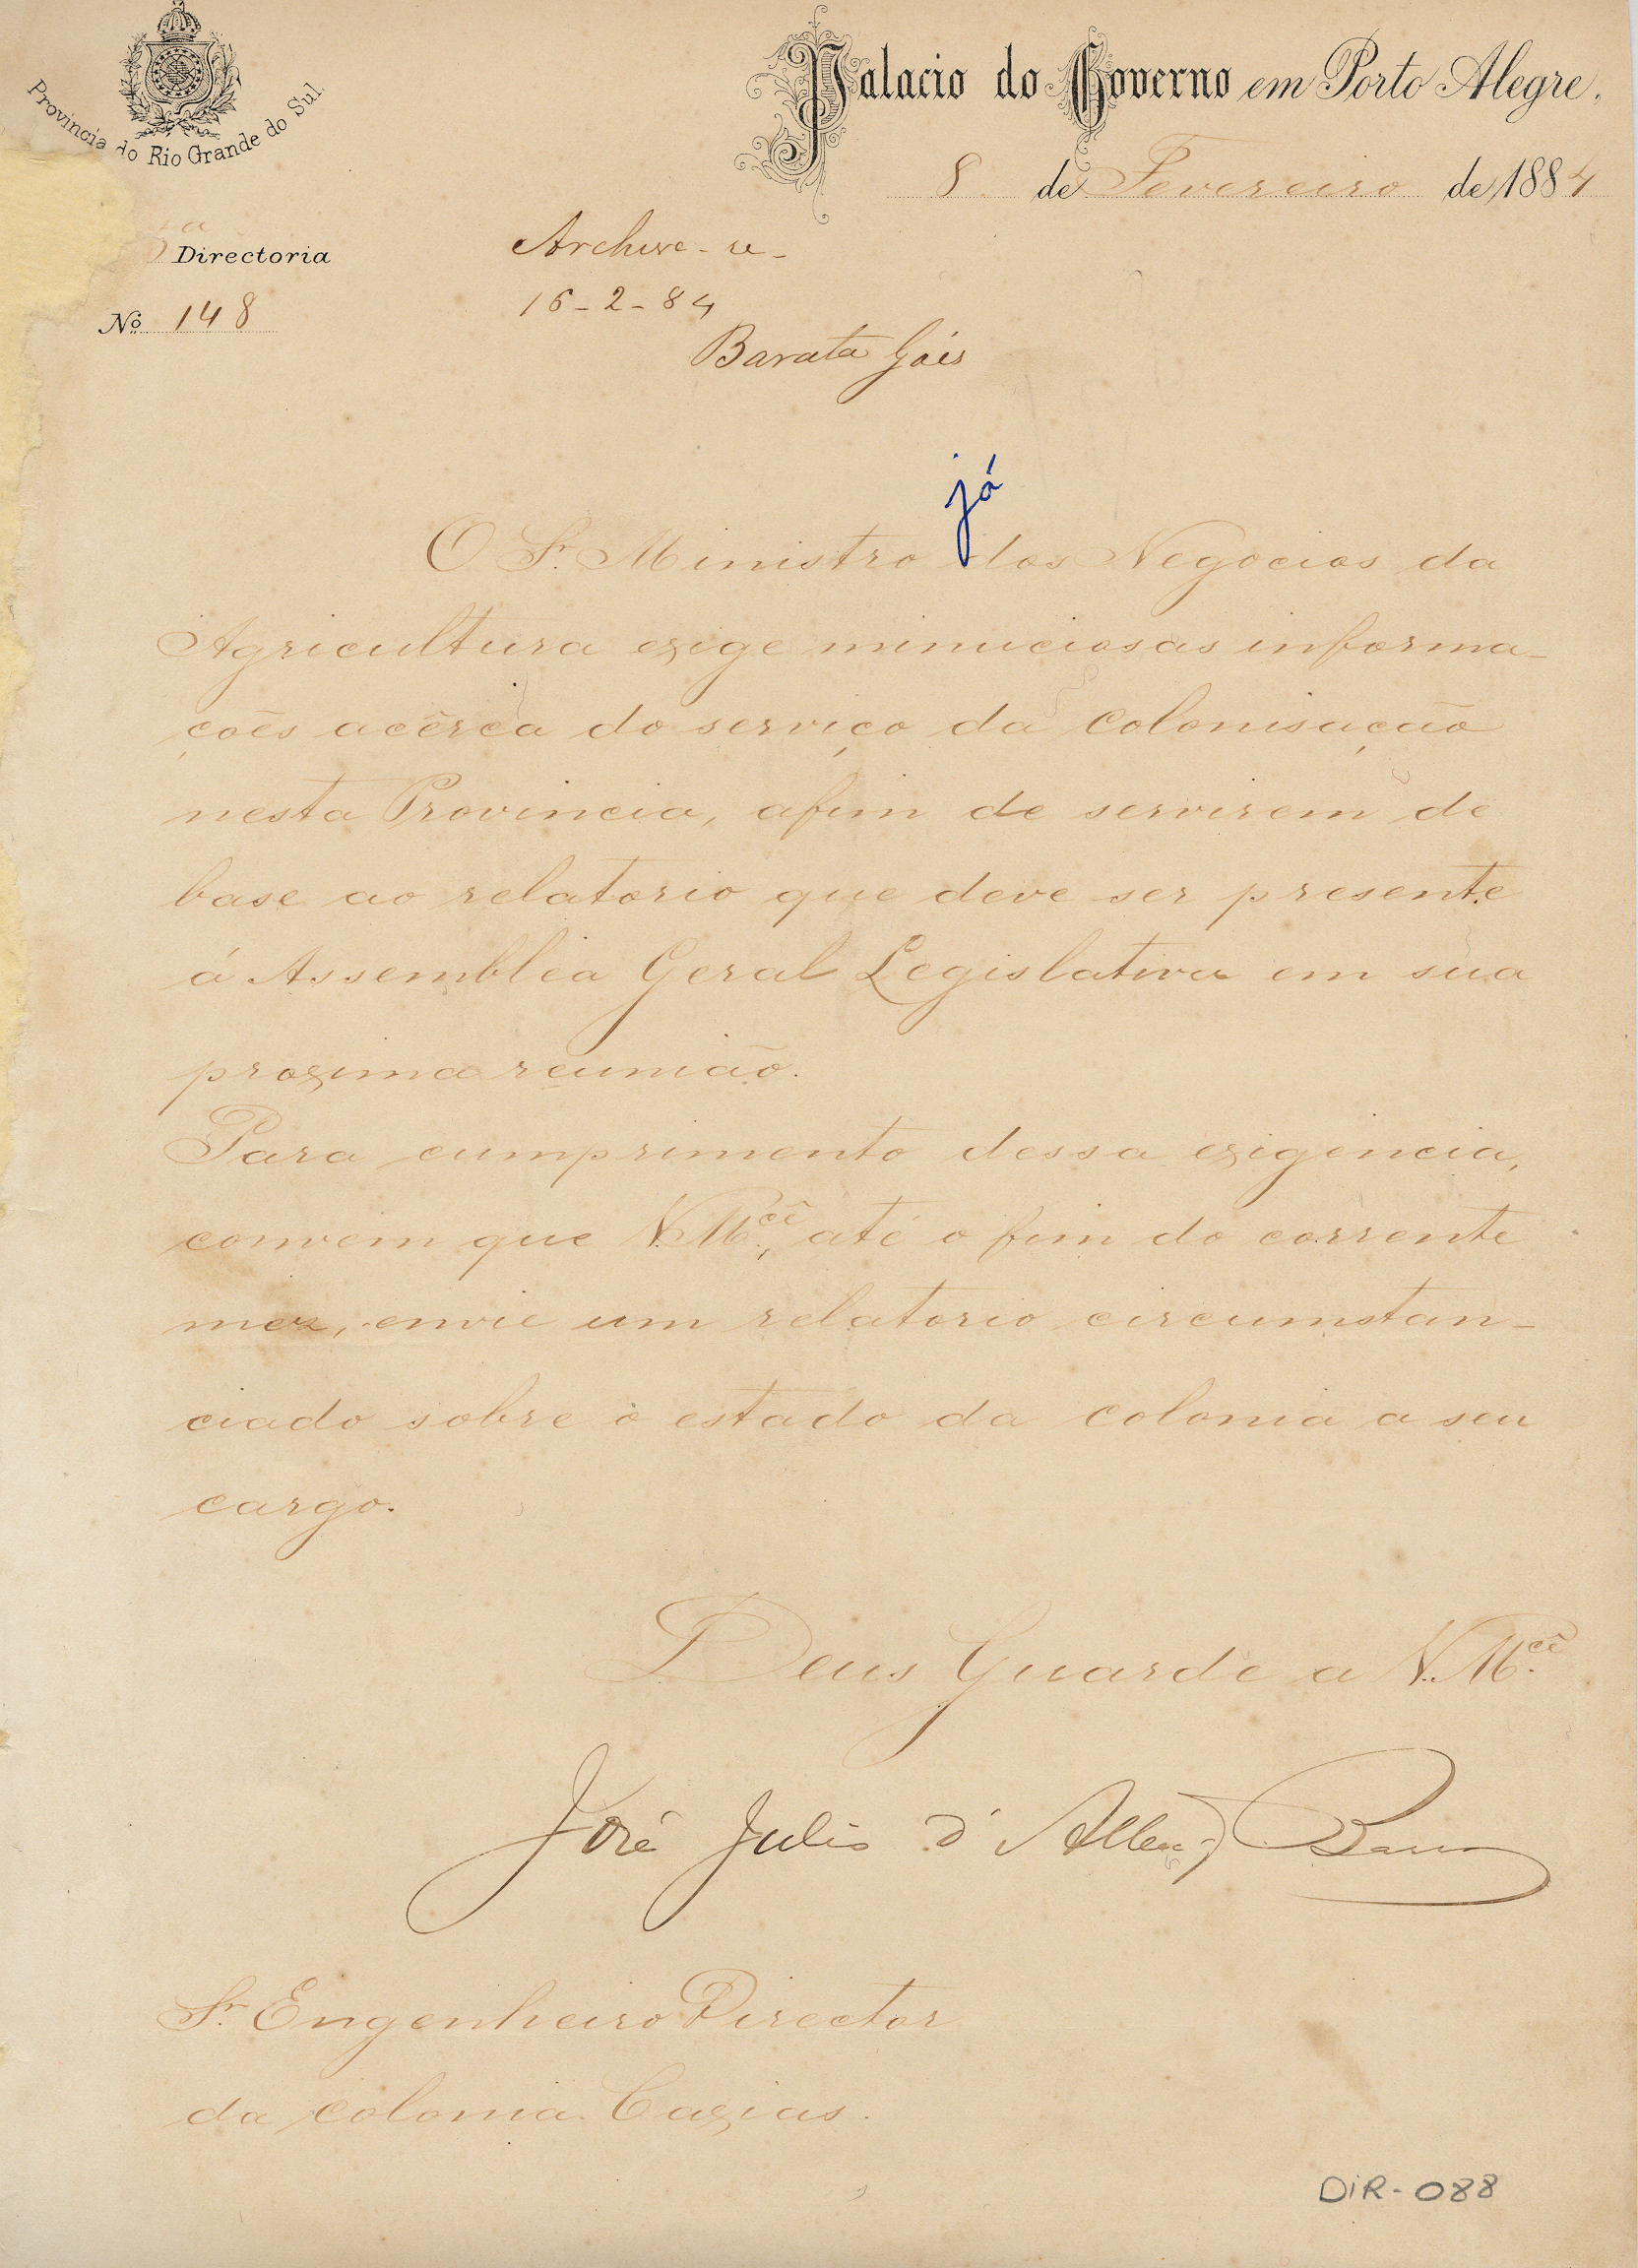 Provincia do Rio Grande do Sul.
Palacio do Governo em Porto Alegre,
8 de Fevereiro de 1884
Directoria
Nº 148
Archive-se-
16-2-84
Barata Góis
já
O Sr. Ministro dos Negocios da
Agricultura exige minuciosas informa-
ções acêrca do serviço da colonisação
nesta Provincia, afim de servirem de
base ao relatorio que deve ser presente
á Assemblea Geral Legislativa em sua
proxima reunião.
Para cumprimento dessa exigencia,
convem que V. Mcê, até o fim do corrente
mez, envie um relatorio circumstan-
ciado sobre o estado da colonia a seu
cargo.
Deus Guarde a V. Mcê.
José Julio d'Albuqe Barros
Sr. Engenheiro Director
da colonia Caxias.
DIR-088